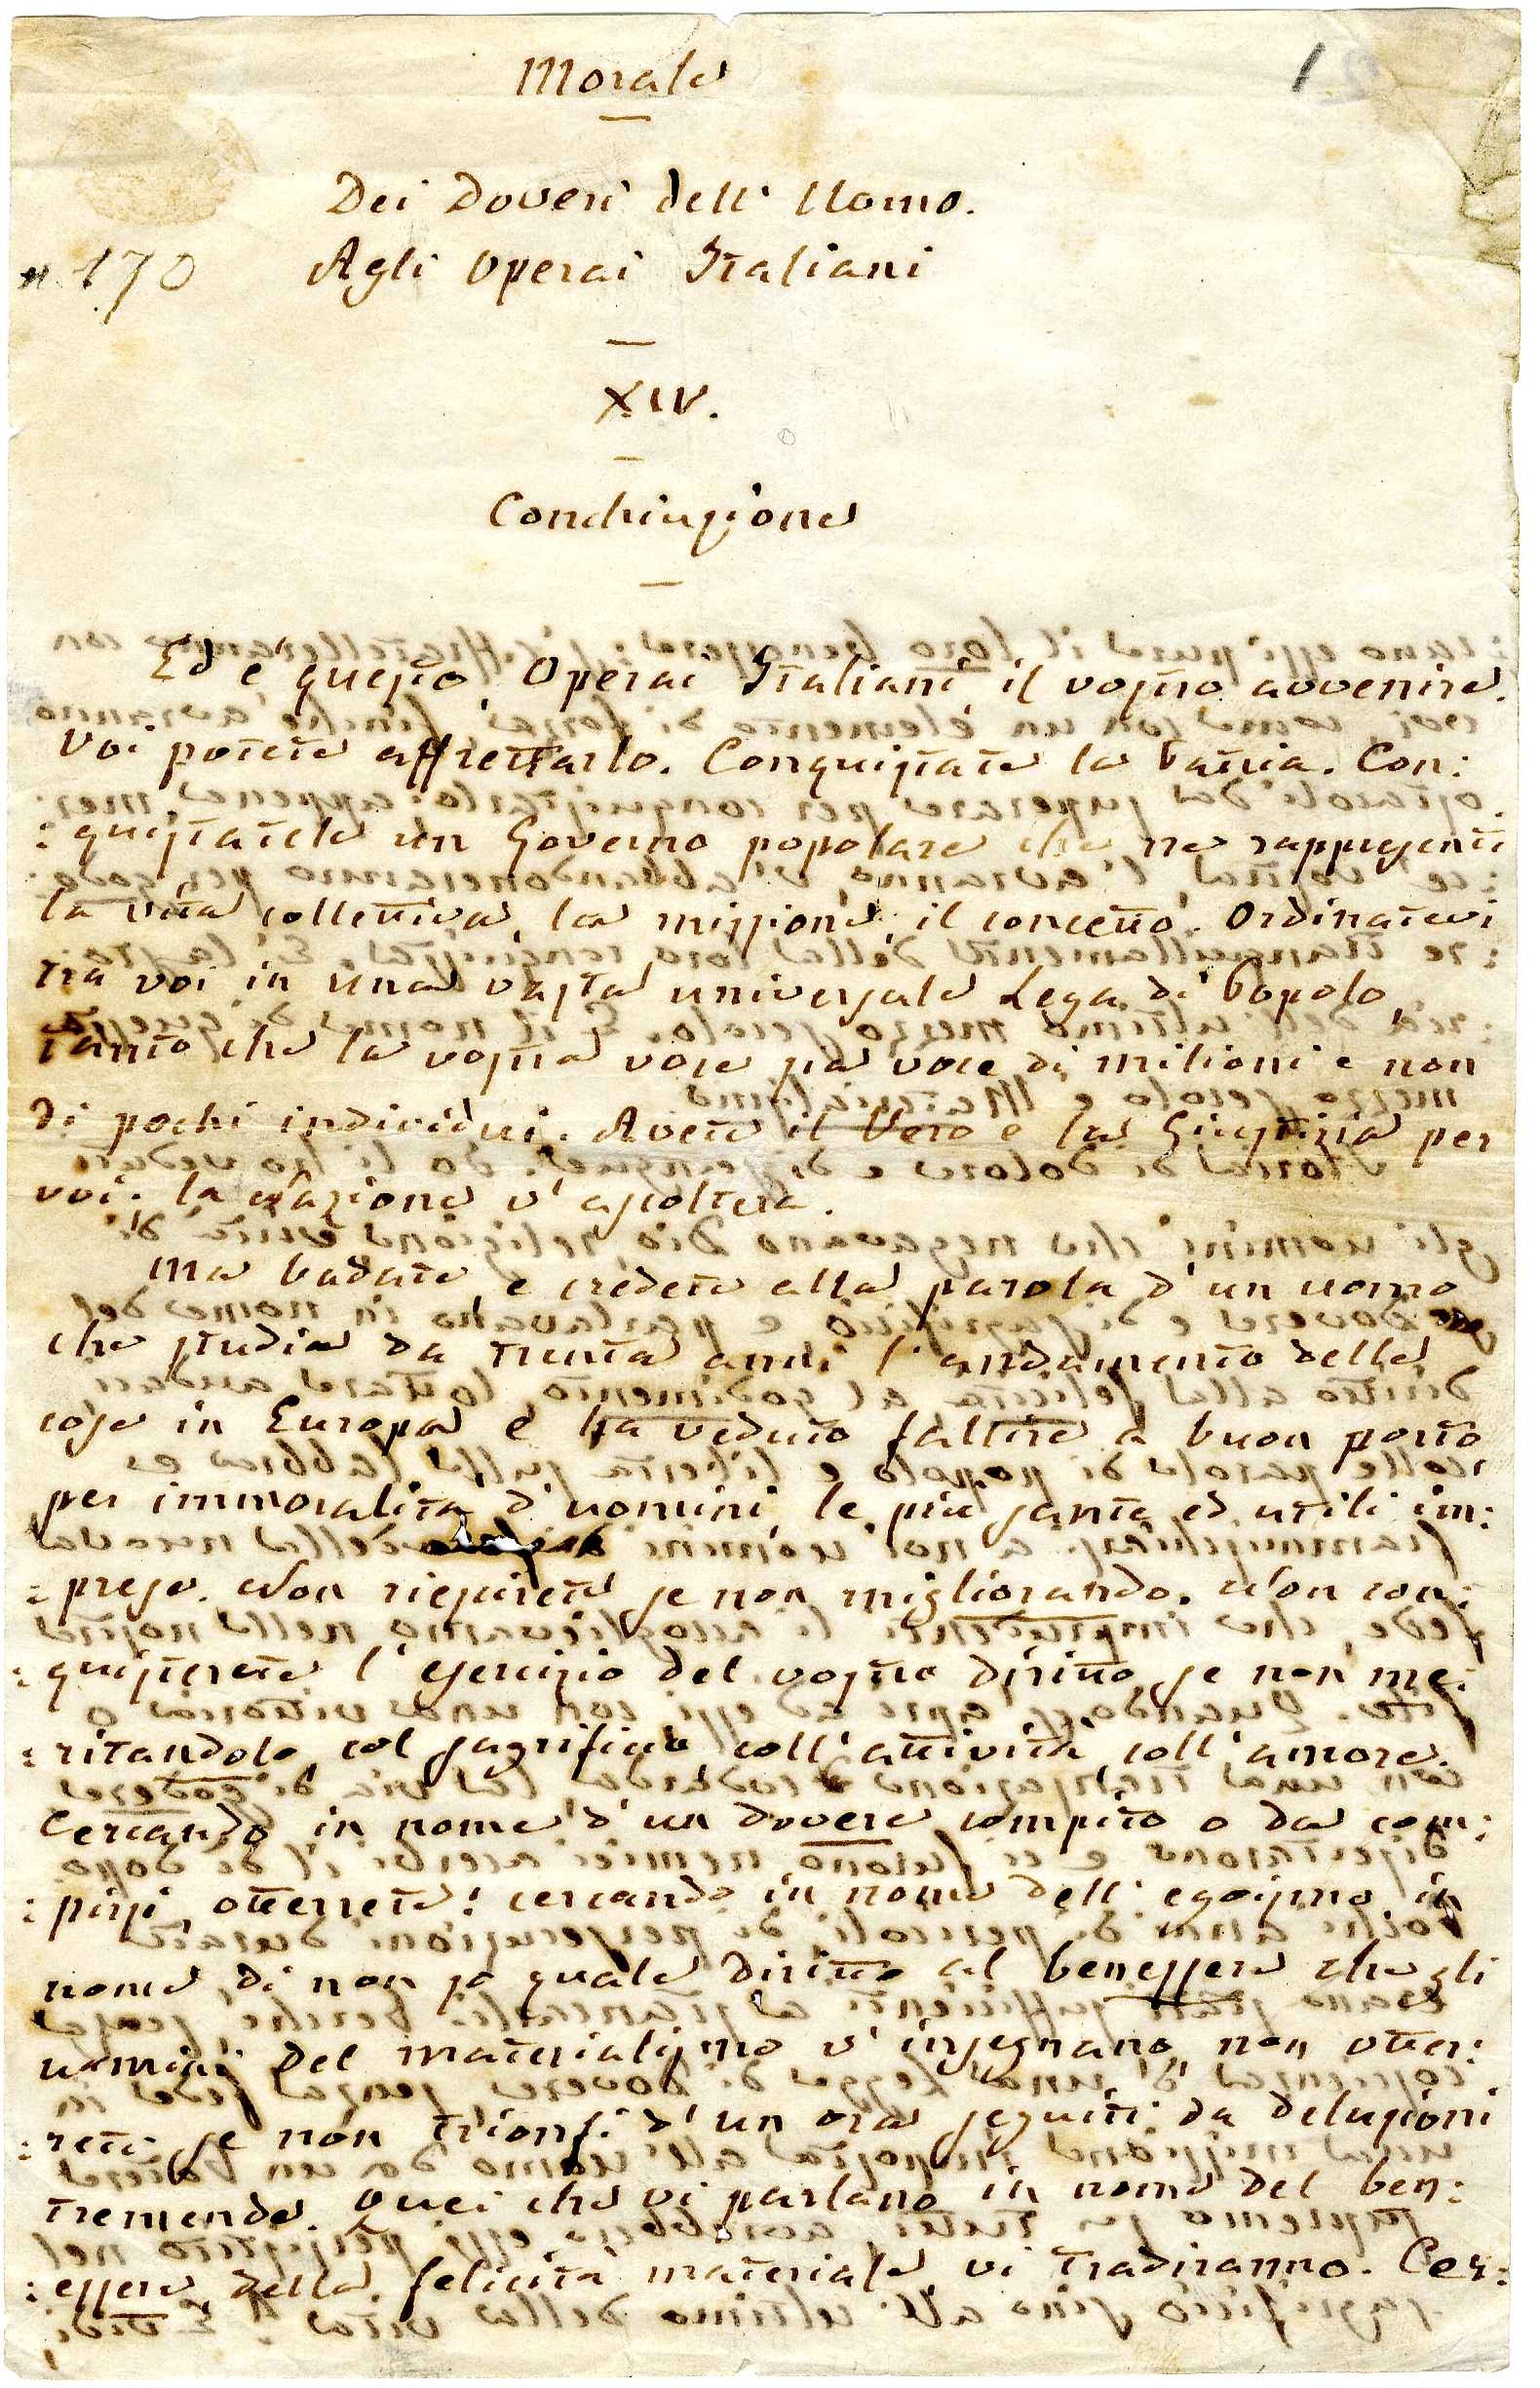 Morale
1
Dei Doveri dell' Uomo.
n. 170
Agli Operai Italiani
XIV.
Conchiusione
Ed è questo, Operai Italiani, il vostro avvenire.
Voi potete affrettarlo. Conquistate la Patria. Con:
:quistatele un Governo popolare che ne rappresenti
la vita collettiva, la missione, il concetto. Ordinatevi
tra voi in una vasta universale Lega di Popolo,
tanto che la vostra voce sia voce di milioni e non
di pochi individui. Avete il Vero e la Giustizia per
voi: la Nazione v' ascolterà.
Ma badate, e credete alla parola d' un uomo
che studia da trenta anni l' andamento delle
cose in Europa e ha veduto fallire a buon porto
per immoralità d' uomini, le più sante ed utili im:
:prese. Non riescirete se non migliorando. Non con:
:quisterete l' esercizio del vostro diritto, se non me:
:ritandolo, col sagrificio coll' attività coll' amore.
Cercando in nome d' un dovere compito o da com:
:pirsi, otterrete: cercando in nome dell' egoismo, in
nome di non so quale diritto al benessere che gli
uomini del materialismo v' insegnano, non otter:
:rete se non trionfi d' un ora seguiti da delusioni
tremende. Quei che vi parlano in nome del ben:
:essere, della felicità materiale, vi tradiranno. Cer: